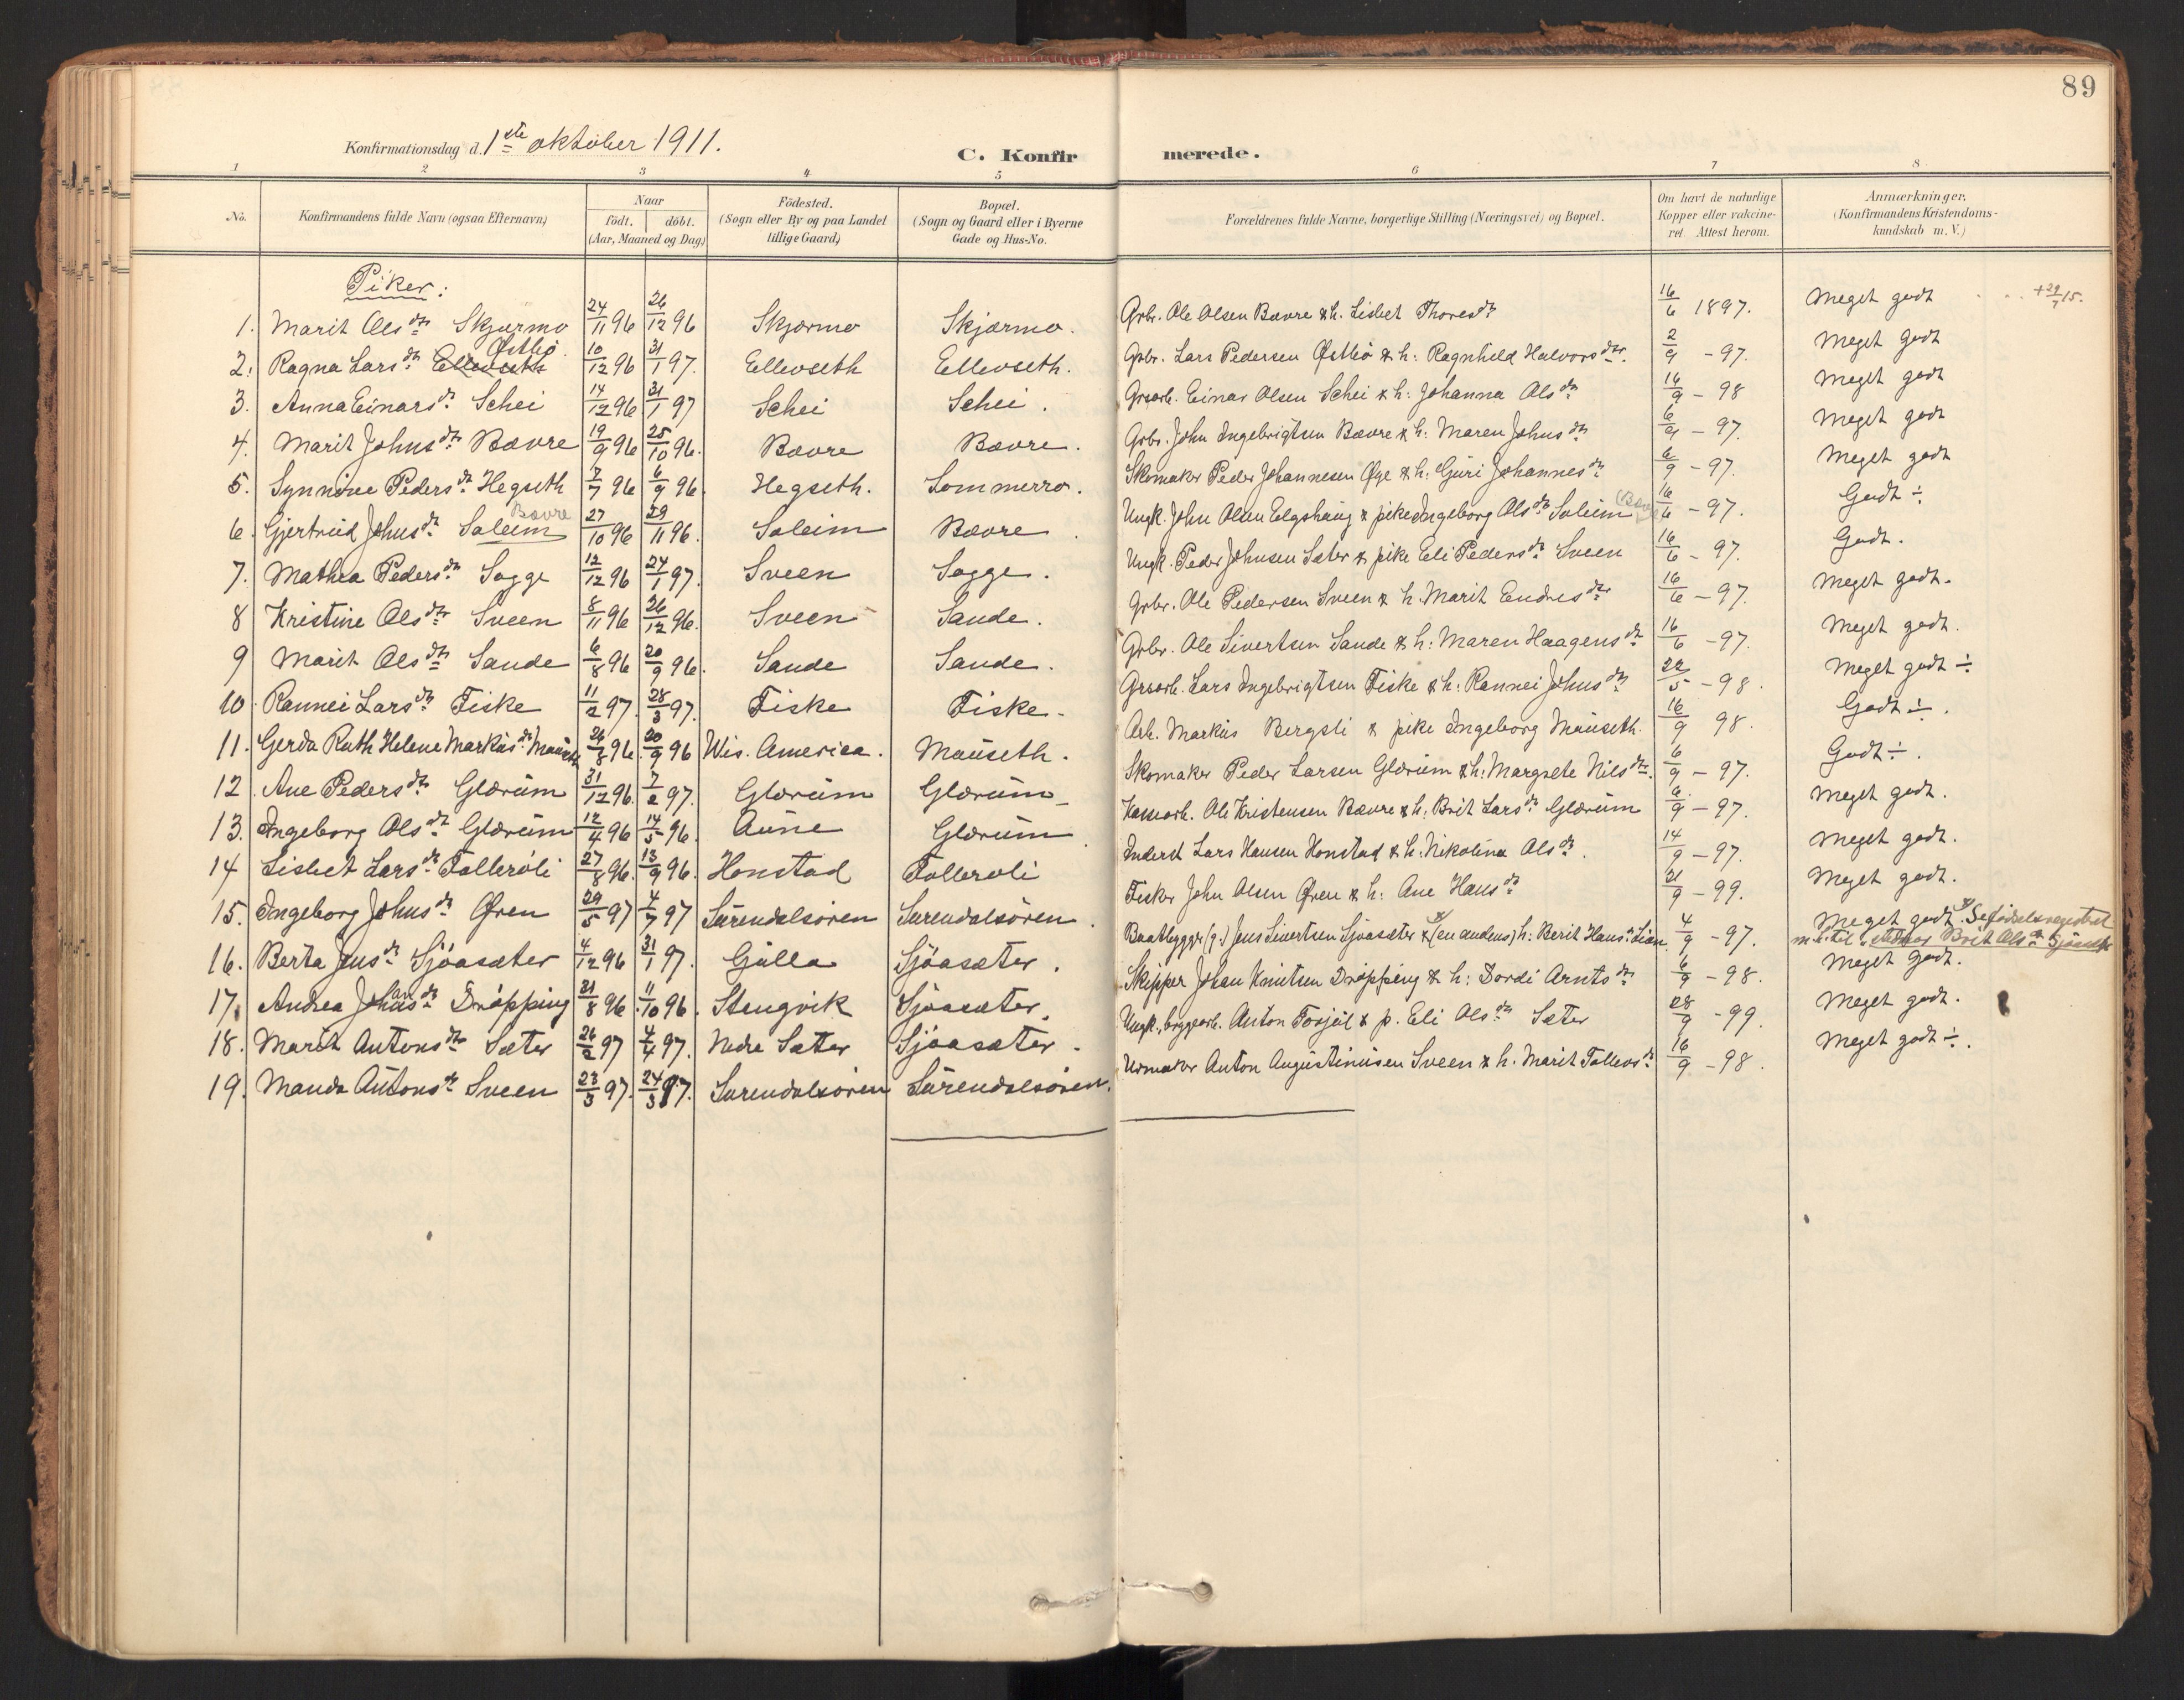 89
Konfirmationsdag d. 1ste oktober 1911.
C. Konfirmerede.
1 2 3 4 5 6 7 8
No. Konfirmandens fulde Navn (ogsaa Efternavn) Naar födt. döbt. (Aar, Maaned og Dag) Födested. (Sogn eller By og paa Landet tillige Gaard) Bopæl. (Sogn og Gaard eller i Byerne Gade og Hus-No. Forældrenes fulde Navne, borgerlige Stilling (Næringsvei) og Bopæl. Om havt de naturlige Kopper eller vakcineret. Attest herom. Anmærkninger. (Konfirmandens Kristendomskundskab m. V.)
Piker:
1. Marit Olsdtr Skjærmo 24/11 96 26/12 96 Skjærmo Skjærmo. Grbr. Ole Olsen Bævre & h. Lisbet Thoresdtr 16/6 1897. Meget godt +29/7 15.
2. Ragna Larsdtr Ellevseth Østbö. 10/12 96 31/1 97. Ellevseth Ellevseth. Grbr. Lars Pedersen Østbö & h: Ragnhild Halvorsdtr. 2/9 - 97. Meget godt
3. Anna Einarsdtr Schei 14/12 96 31/1 97 Schei Schei. Grsarb. Einar Olsen Schei & h: Johanna Olsdtr 16/9 - 98 Meget godt
4. Marit Johnsdtr Bævre 19/9 96 25/10 96. Bævre Bævre. Grbr. John Ingebrigtsen Bævre & h: Maren Johnsdtr 6/9 - 97. Meget godt
5. Synnöve Pedersdtr Hegseth 7/7 96 6/9 96. Hegseth. Sommerro. Skomaker Peder Johannesen Øye & h: Guri Johannesdtr 6/9 - 97. Meget godt
6. Gjertrud Johnsdtr Soleim Bævre 27/10 96 29/11 96. Soleim Bævre. Ungk. John Olsen Elgshaug & pike Ingeborg Olsdtr Soleim (Bævre) 16/6 - 97. Godt ÷
7. Mathea Pedersdtr Sogge 12/12 96 24/1 97. Sveen Sogge. Ungk. Peder Johnsen Sæter & pike Eli Pedersdtr Sveen 16/6 - 97. Godt.
8 Kristine Olsdtr Sveen 8/11 96 26/12 96. Sveen Sande. Grbr. Ole Pedersen Sveen & h. Marit Endresdtr 16/6 - 97. Meget godt.
9 Marit Olsdtr Sande 6/8 96 20/9 96. Sande Sande. Grbr. Ole Sivertsen Sande & h: Maren Haagensdtr 16/6 - 97. Meget godt.
10 Rannei Larsdtr Fiske 11/2 97. 28/3 97. Fiske Fiske. Grsarb. Lars Ingebrigtsen Fiske & h: Rannei Johnsdtr 22/5 - 98. Meget godt ÷
11. Gerda Ruth Helene Markusdtr Mauseth 26/8 96. 20/9 96 Wis. America. Mauseth. Arb. Markus Bergsli & pike Ingeborg Mauseth. 16/9 98. Godt ÷.
12. Ane Pedersdtr Glærum 31/12 96. 7/2 97. Glærum Glærum Skomaker Peder Larsen Glærum & h: Margrete Nilsdtr. 6/9 - 97. Godt ÷.
13. Ingeborg Olsdtr Glærum 12/4 96 14/5 96. Aune Glærum. Ole Kristensen Bævre & h: Brit Larsdtr Glærum 6/9 - 97. Meget godt.
14 Lisbet Larsdtr Tolleröli 27/8 96. 13/9 96. Honstad Tolleröli Inderst Lars Hansen Honstad & h: Nikolina Olsdtr. 14/9 - 97. Meget godt.
15. Ingeborg Johnsdtr Øren 29/5 97 4/7 97 Surendalsören Surendalsören. Fisker John Olsen Øren & h: Ane Hansdtr 21/9 - 99. Meget godt.
16. Berta Jensdtr Sjöasæter 4/12 96 31/1 97. Gulla Sjöasæter. Baatbygger (g.) Jens Sivertsen Sjöasæter & (en andens) h: Berit Hansdtr Lien 4/9 - 97. Meget godt. Se födselsregistret Brit Olsdtr Sjöasæter
17. Andrea Johansdtr Dröpping 21/8 96 11/10 96. Stengvik Sjöasæter. Skipper Johan Knutsen Dröpping & h: Dordi Arntsdtr 6/9 - 98. Meget godt.
18. Marit Antonsdtr Sæter 26/2 97 4/4 97. Nedre Sæter Sjöasæter. Ungk., bryggearb. Anton Torjul & p. Eli Olsdtr Sæter 28/9 - 99. Meget godt.
19. Manda Antonsdtr Sveen 23/3 97. 24/5 97. Surendalsören Surendalsören. Urmaker Anton Augustinusen Sveen & h. Marit Tollevsdtr 16/9 - 98. Meget godt ÷.